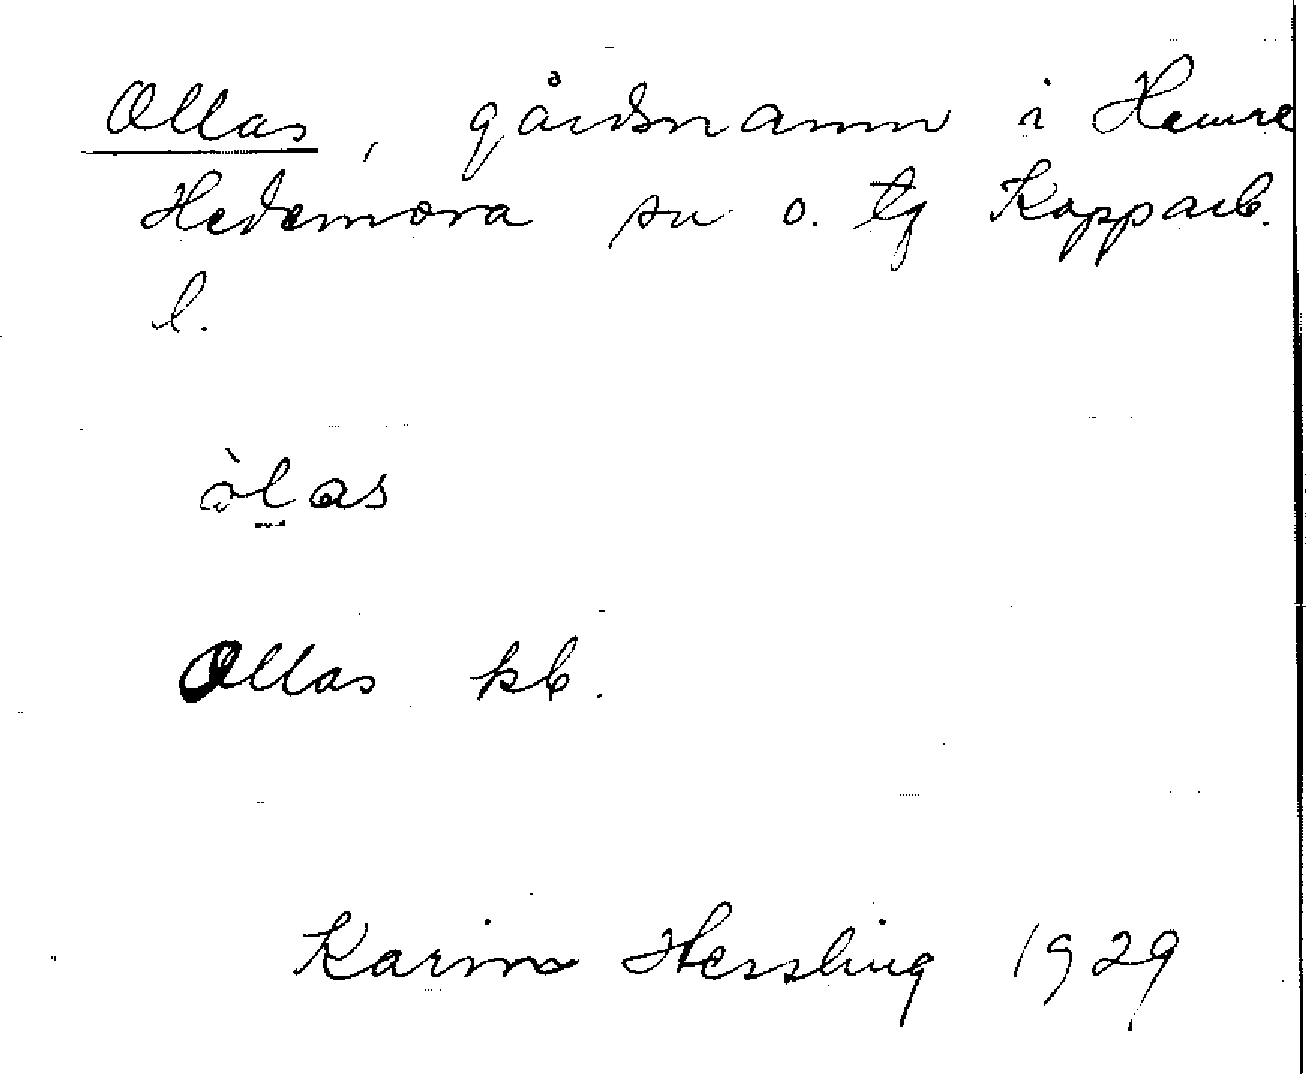 Ollas, gårdsnamn i Hamre
Hedemora sn o. tg Kopparb.
l.
òlas
Ollas kb.
Karin Hessling 1929